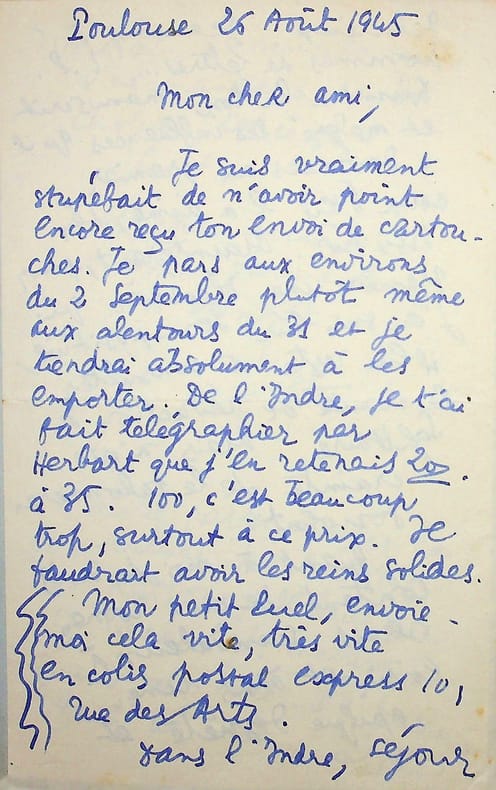 Toulouse 26 Août 1945
Mon cher ami,
Je suis vraiment
stupéfait de n'avoir point
encore reçu ton envoi de cartou-
ches. Je pars aux environs
du 2 Septembre plutôt même
aux alentours du 31 et je
tiendrai absolument à les
emporter. De l'Indre, je t'ai
fait télégraphier par
Herbart que j'en retenais 20
à 35. 100, c'est beaucoup
trop, surtout à ce prix. Il
faudrait avoir les reins solides.
Mon petit Suel, envoie-
moi cela vite, très vite
en colis postal express 10,
rue des Arts.
Dans l'Indre, séjour